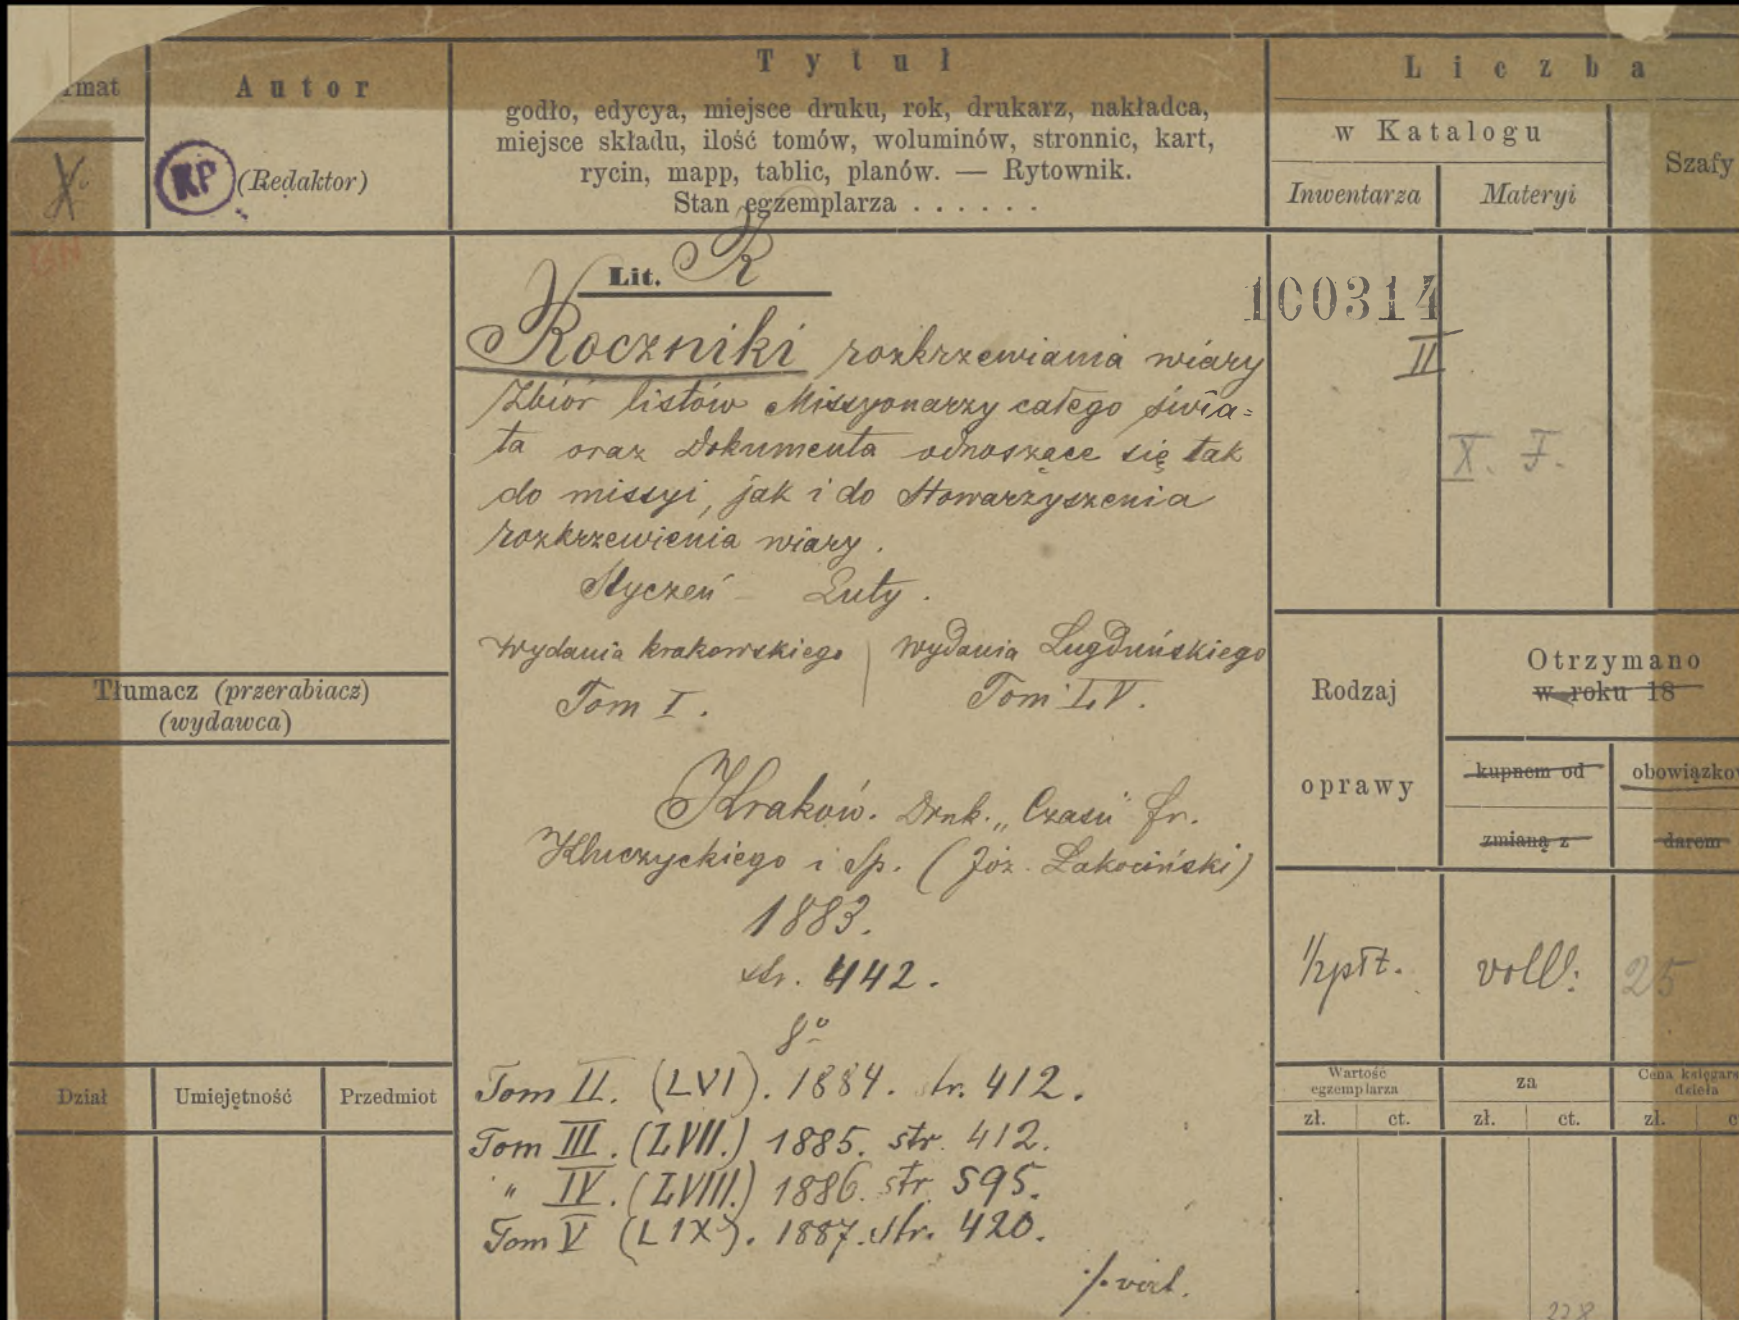 Autor
(Redaktor)
RP
X
Tytuł
godło, edycya, miejsce druku, rok, drukarz, nakładca,
miejsce składu, ilość tomów, woluminów, stronnic, kart,
rycin, mapp, tablic, planów. — Rytownik.
Stan egzemplarza . . . . . .
Liczba
w Katalogu
Inwentarza
Materyi
Szafy
Lit. R
Roczniki rozkrzewiania wiary
Zbiór listów Missyonarzy całego świa=
ta oraz Dokumenta odnoszące się tak
do missyi, jak i do Stowarzyszenia
rozkrzewienia wiary.
Styczeń - Luty.
wydania krakowskiego
Tom I.
wydania Lugduńskiego
Tom LV.
Kraków. Druk. „Czasu" fr.
Kluczyckiego i Sp. (Józ. Łakociński)
1883.
str. 442.
8o
Tom II. (LVI). 1884. str. 412.
Tom III. (LVII.) 1885. str. 412.
" IV. (LVIII.) 1886. str. 595.
Tom V (LIX). 1887. str. 420.
./. vert.
100314
II
X. F.
Tłumacz (przerabiacz)
(wydawca)
Rodzaj
oprawy
Otrzymano
w roku 18
kupnem od
zmianą z
darem
1/2 płt.
voll:
25
Dział
Umiejętność
Przedmiot
Wartość
egzemplarza
za
dzieła
zł.
ct.
zł.
ct.
zł.
228